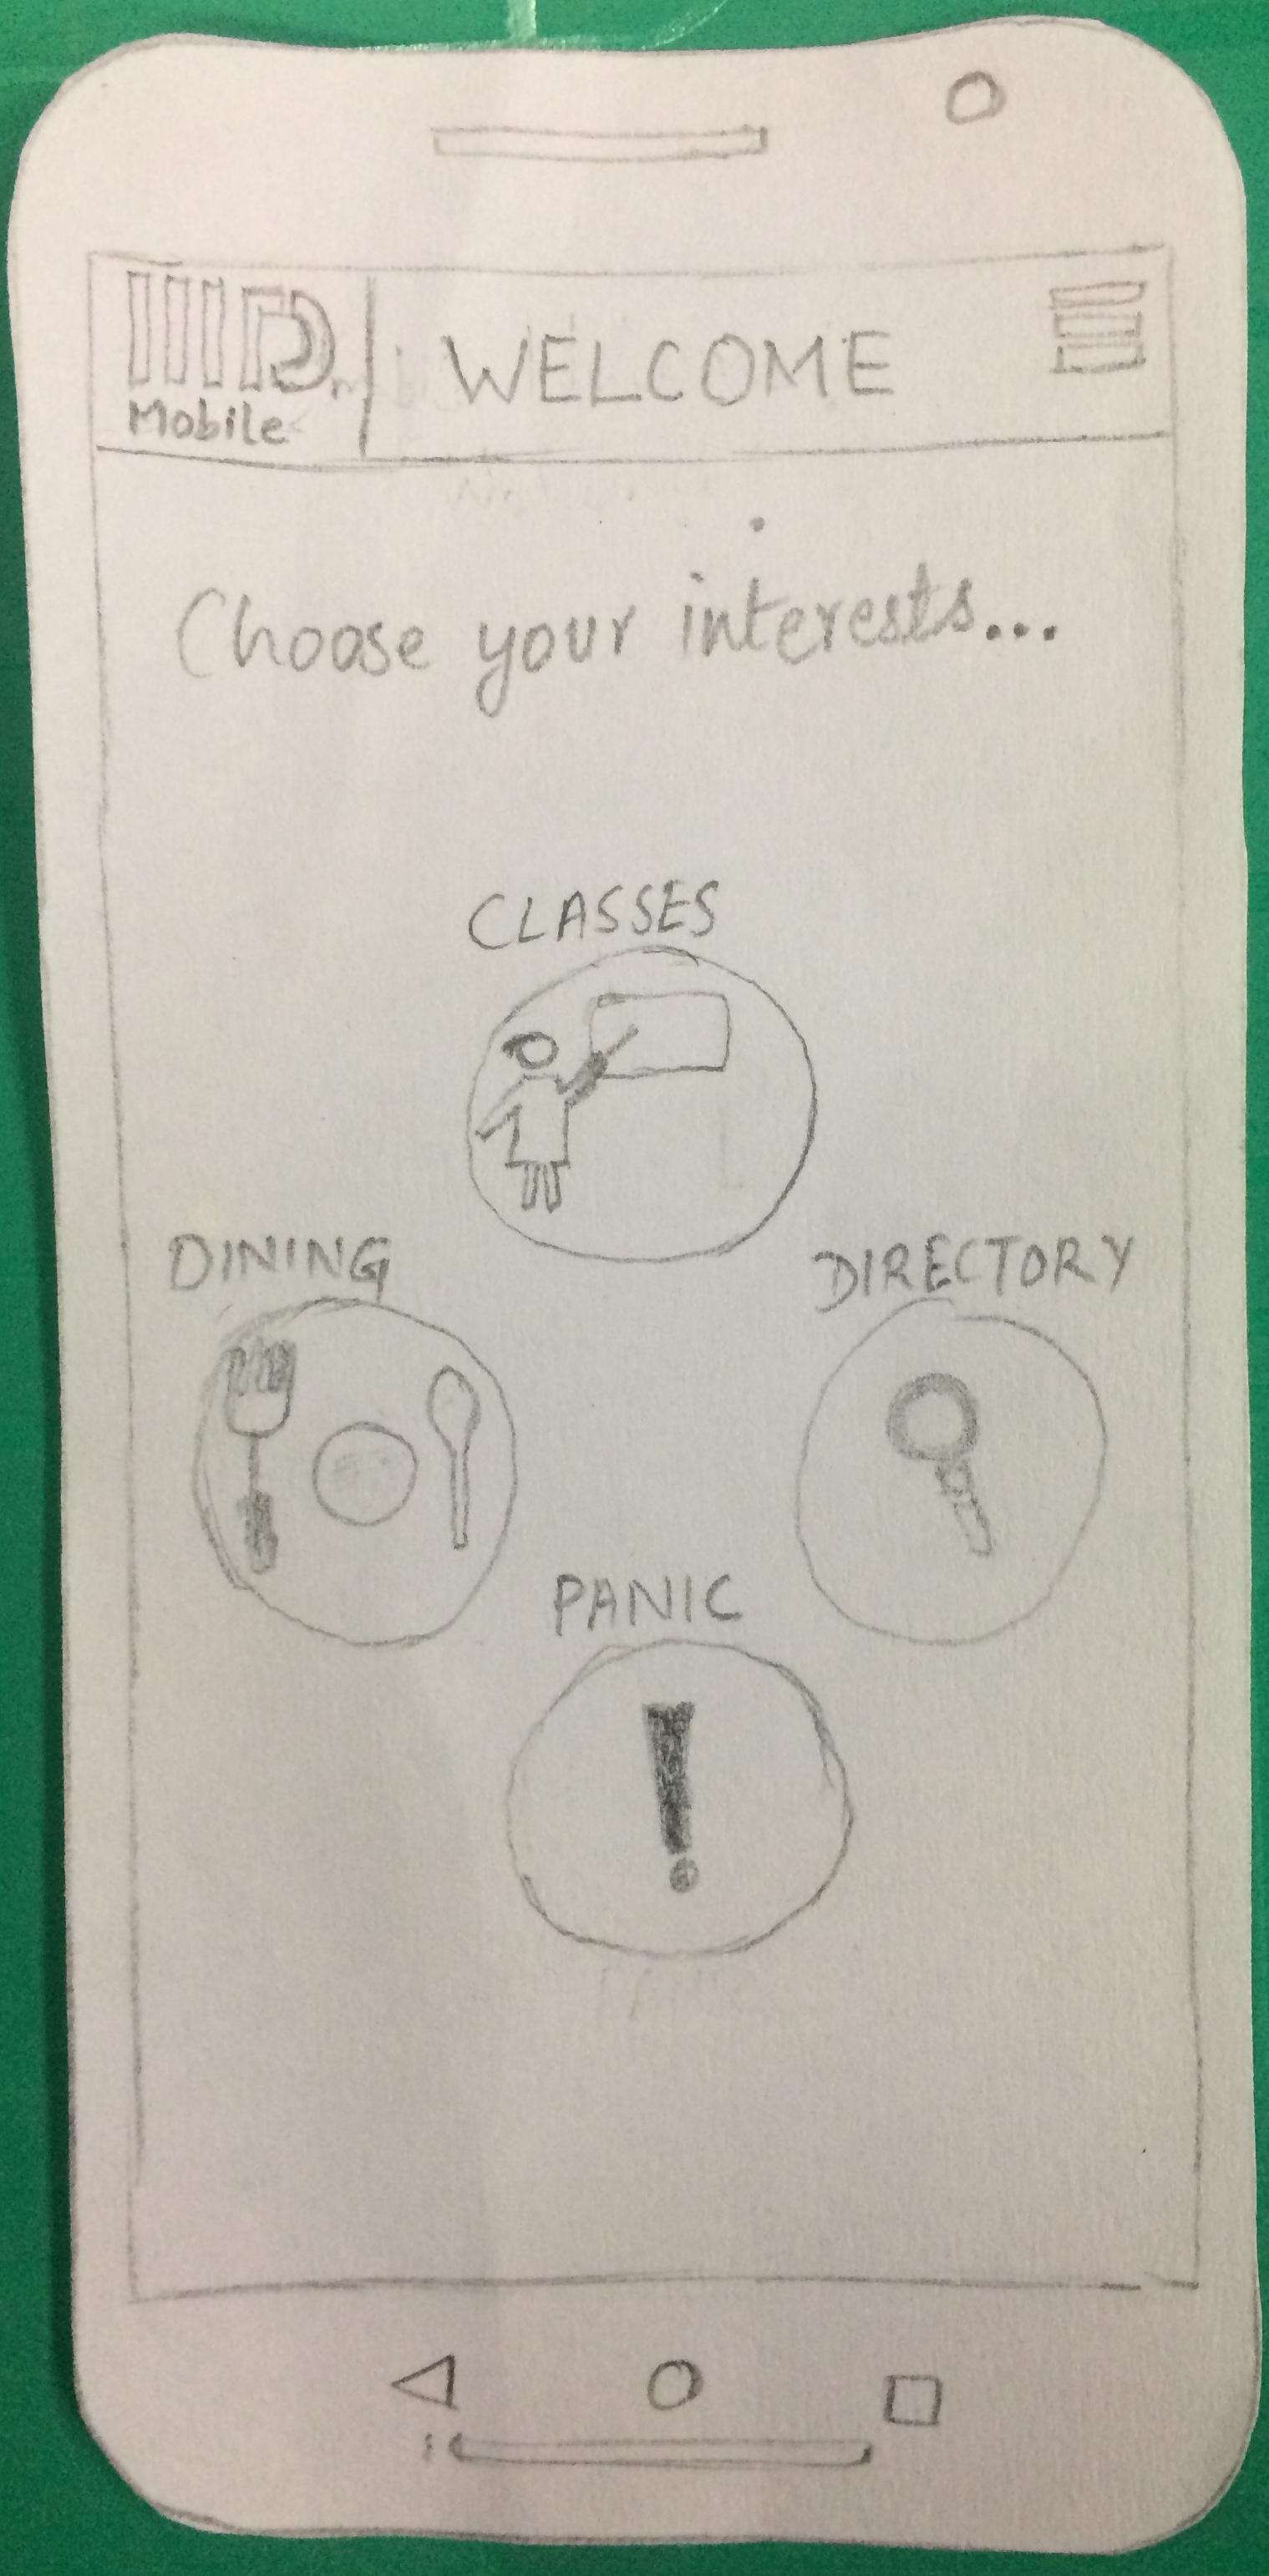 IIITD
Mobile
WELCOME
Choose your interests...
CLASSES
DINING
DIRECTORY
PANIC
!